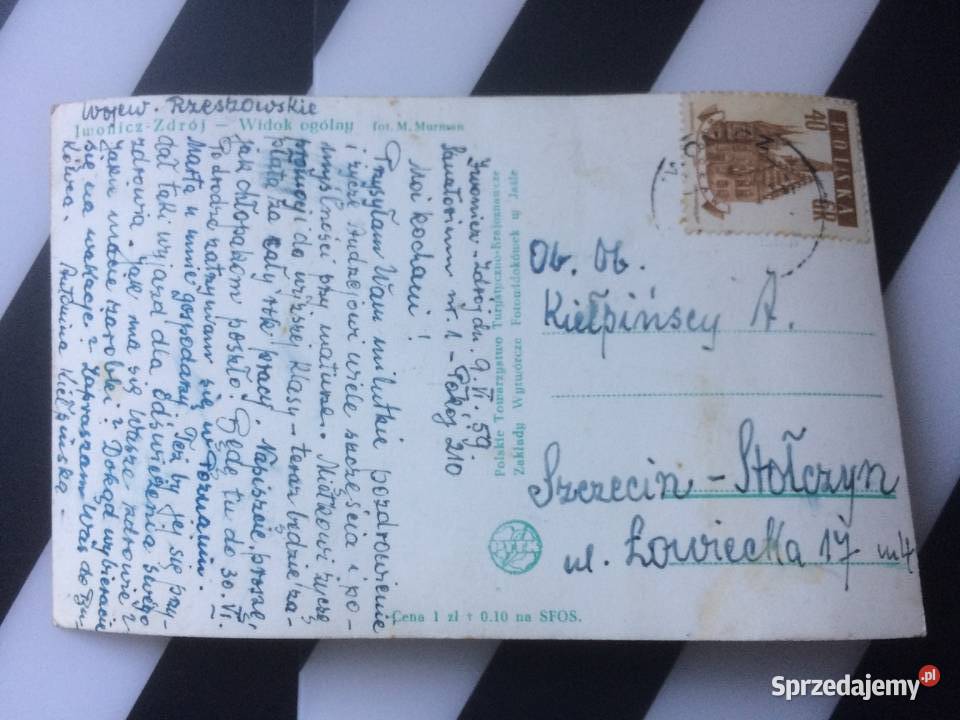 Wojew. Rzeszowskie
Iwonicz-Zdrój — Widok ogólny fot. M. Murman
Iwonicz-Zdrój dn. 9.VI.59.
Sanatorium nr. 1 - Pokój 210
Moi kochani!
Przysyłam Wam milutkie pozdrowienie
i życzę Andrzejowi wiele szczęścia i po-
myślności przy maturze. Miłkowi życzę
promocji do wyższej klasy - teraz będzie za-
płata za cały rok pracy. Napiszcie, proszę,
jak chłopakom poszło. Będę tu do 30.VI.
Po drodze zatrzymam się w Poznaniu.
Masła u mnie gospodarzy. Też by jej się przy-
dał taki wyjazd dla odświeżenia swego
zdrowia. Jak ma się Wasze zdrowie i
jakie macie zarobki? Dokąd wybieracie
się na wakacje? Zapraszam Was do
Antonina Kiełpińska.
Polskie Towarzystwo Turystyczno-Krajoznawcze
Zakłady Wytwórcze Fotowidokówek w Jaśle
Cena 1 zł + 0.10 na SFOS.
POLSKA
40 GR
Ob. Ob.
Kiełpińscy A.
Szczecin - Stołczyn
ul. Łowiecka 17 m 4
Sprzedajemy.pl